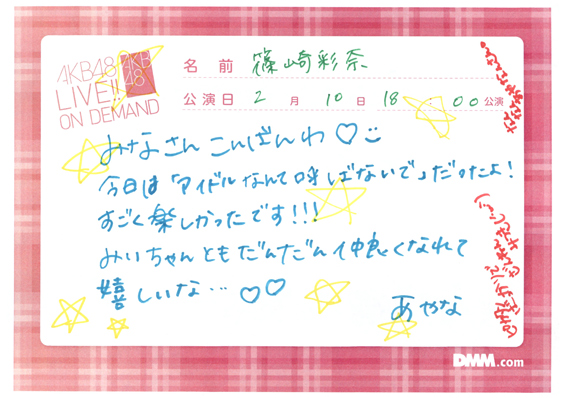 AKB48
LIVE!!
ON DEMAND
AKB
48
名前 篠崎彩奈
公演日 2月10日 18:00公演
みなさんこんばんわ♡
今日は「アイドルなんて呼ばないで」だったよ!
すごく楽しかったです!!!
みぃちゃんともだんだん仲良くなれて
嬉しいな…♡♡
あやな
DMM.com